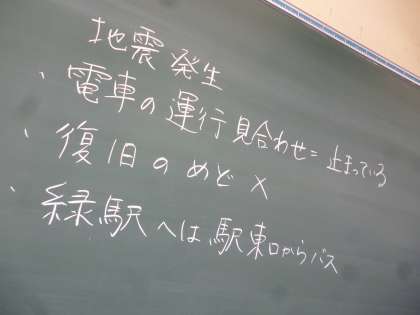 地震発生
、電車の運行見合わせ=止まっている
、復旧のめど×
、緑駅へは駅東口からバス